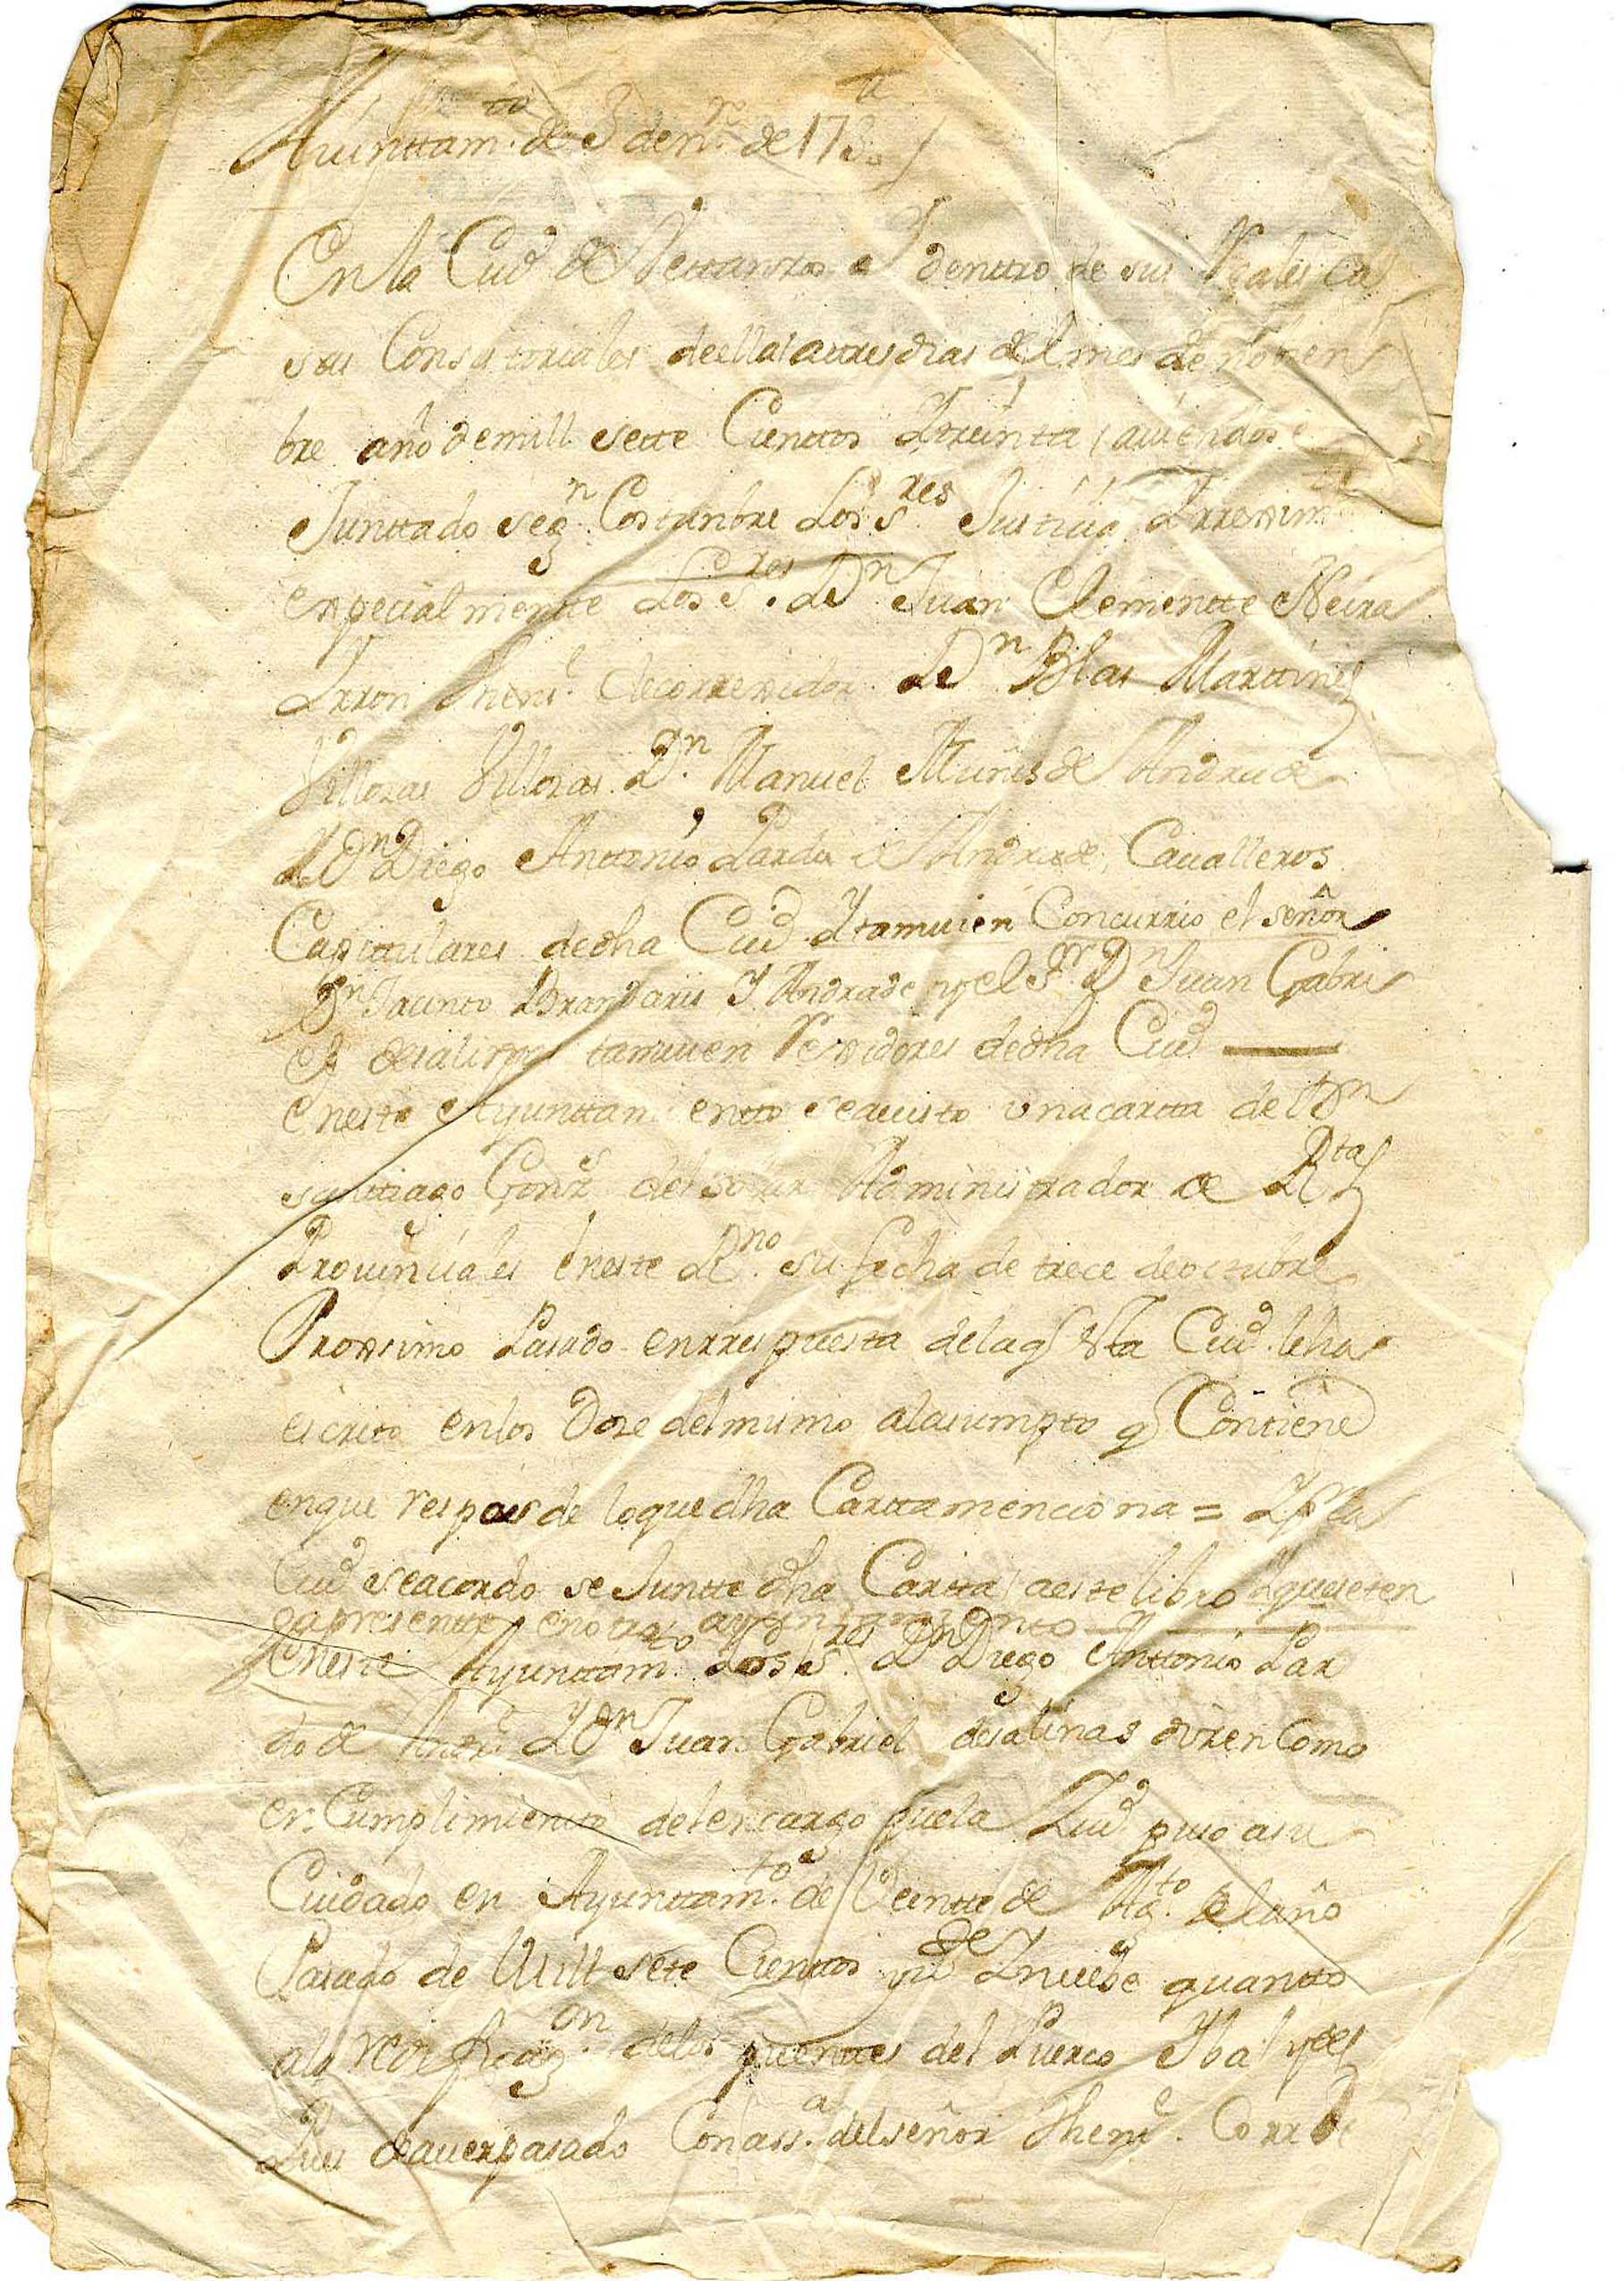 Auinttam.to de 3 de n.re de 173
En la Ciud de Vettanzos a dentro de sus Reales ca
sas Consistoriales de ella a tres dias del mes de nobien
bre año de mill sette Cienttos Y treinta auiendose
Junttado seg.n Costunbre Los S.res Justicia Y rreximto
expecialmentte Los S.res D.n Juan Clementte Neira
Thent.e de correxidor D.n Blas Marttinez
Villozas Villozas D.n Manuel Muñis de Andrade
Y D.n Diego Anttonio Pardo de Andrade, Caualleros
Capittulares de dha Ciud Y tamuien Concurrio el señor
D.n Jacinto Brandariz Y Andrade y el S.r D.n Juan Gabri
el de salinas tamuien Rexidores de dha Ciud
en este Ayunttamientto se a uisto una cartta del D.n
santtiago Gonz.s del solar Administrador de R.tas
Prouinciales en este R.no su fecha de trece de octubre
Proximo Pasado en rrespuesta de la q esta Ciud. le ha
escrito en los Doze del mismo al asumpto q Contiene
en que responde lo que dha Cartta menciona = Y por la
Ciud se acordo se Juntte dha Cartta a este libro Y que se ten
ga presentte en otro ayuntamiento
En este Ayunttam.to Los S.res D.n Diego Anttonio Par
do de Andr.e Y D.n Juan Gabriel de salinas dixen Como
en Cumplimientto del encargo que la Ziud puso a su
Cuidado en Ayunttam.to de Veintte de Ag.to del año
Pasado de Mill sete Cienttos y Y nuebe quantto
a la reedificaz.on de los puenttes del Puerco Y
Pues de auer pasado Con ass.a del señor Thent.e Corre